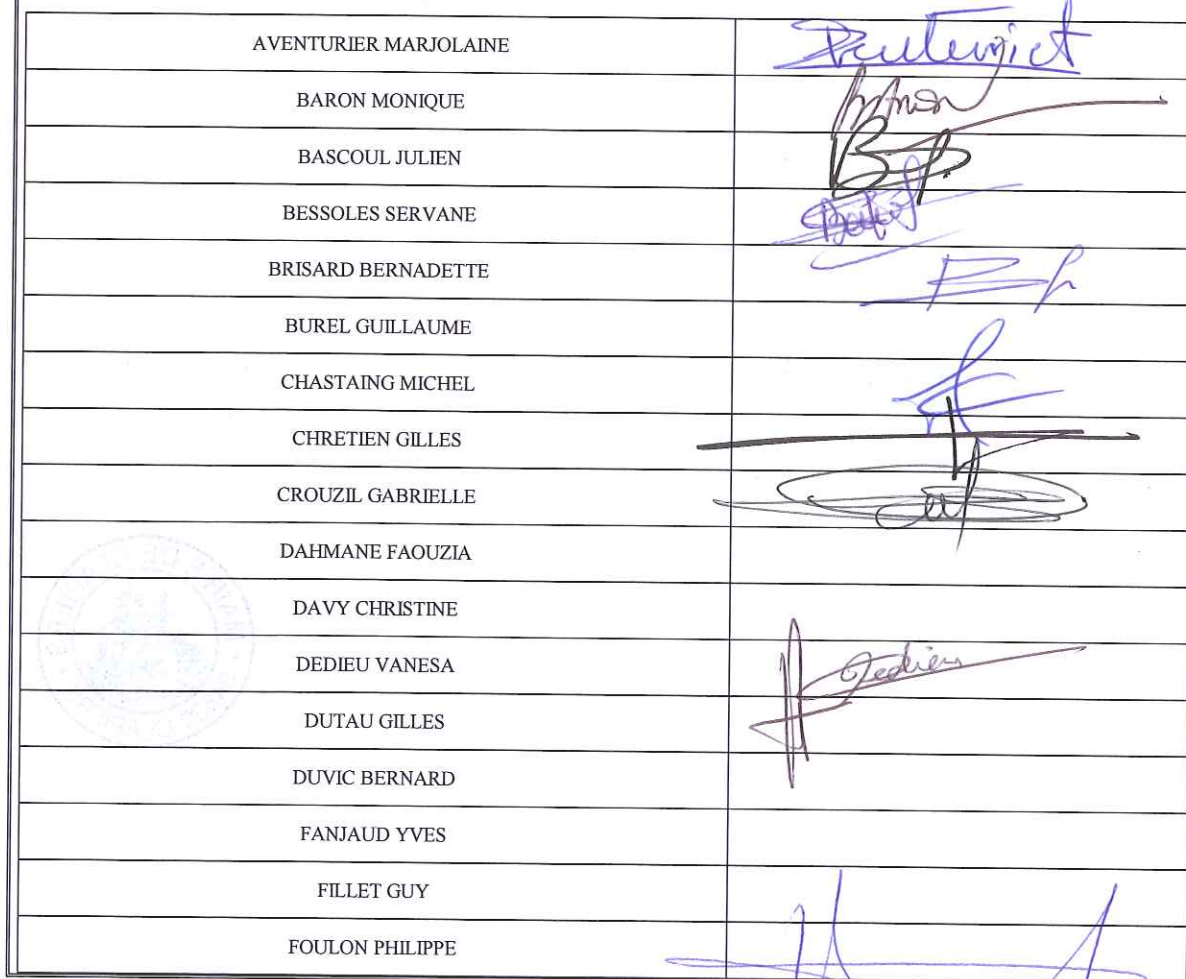 AVENTURIER MARJOLAINE
BARON MONIQUE
BASCOUL JULIEN
BESSOLES SERVANE
BRISARD BERNADETTE
BUREL GUILLAUME
CHASTAING MICHEL
CHRETIEN GILLES
CROUZIL GABRIELLE
DAHMANE FAOUZIA
DAVY CHRISTINE
DEDIEU VANESA
Dedieu
DUTAU GILLES
DUVIC BERNARD
FANJAUD YVES
FILLET GUY
FOULON PHILIPPE